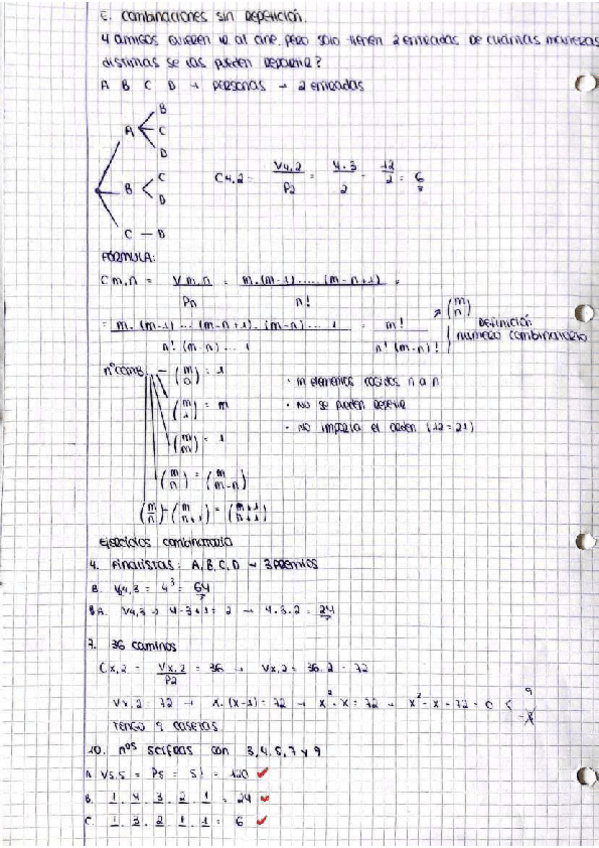 E. combinaciones sin repetición.
4 amigos quieren ir al cine, pero solo tienen 2 entradas de cuantas maneras
distintas se las pueden repartir?
A B C D → personas → 2 entradas
B
A C
D
C
B D
C — D
C4,2 = V4,2 / P2 = 4·3 / 2 = 12 / 2 = 6
FÓRMULA:
Cm,n = Vm,n / Pn = m.(m-1).....(m-n+1) / n! =
= m.(m-1)...(m-n+1).(m-n)...1 / n!(m-n)...1 = m! / n!(m-n)! → (m n) Definición numero combinatorio
nº comb. — (m 0) = 1
(m 1) = m
(m m) = 1
(m n) = (m m-n)
(m n) + (m n+1) = (m+1 n+1)
· m elementos cogidos n a n
· NO se pueden repetir
· NO importa el orden (12=21)
ejercicios combinatoria
4. Finalistas: A, B, C, D → 3 premios
B. V4,3 = 4³ = 64
BA. V4,3 → 4-3+1 = 2 → 4.3.2 = 24
7. 36 caminos
Cx,2 = Vx,2 / P2 = 36 → Vx,2 = 36.2 = 72
Vx,2 = 72 → x.(x-1) = 72 → x² - x = 72 → x² - x - 72 = 0 < 9 -8
Tengo 9 casetas
10. nos 5cifras con 3, 4, 5, 7 y 9
A. V5,5 = P5 = 5! = 120 ✓
B. 1 . 4 . 3 . 2 . 1 = 24 ✓
C. 1 . 3 . 2 . 1 . 1 = 6 ✓